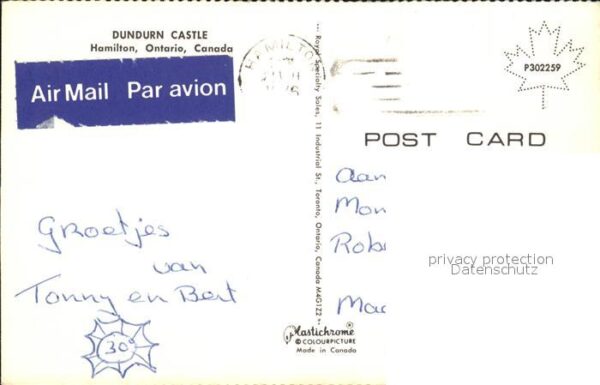 DUNDURN CASTLE
Hamilton, Ontario, Canada
Air Mail Par avion
HAMILTON
P302259
POST CARD
Royal Specialty Sales, 11 Industrial St., Toronto, Ontario, Canada M4G1Z2
Groetjes
van
Tonny en Bert
30°
Aan
Mon
Robe
Maa
privacy protection
Datenschutz
Plastichrome®
©COLOURPICTURE
Made in Canada